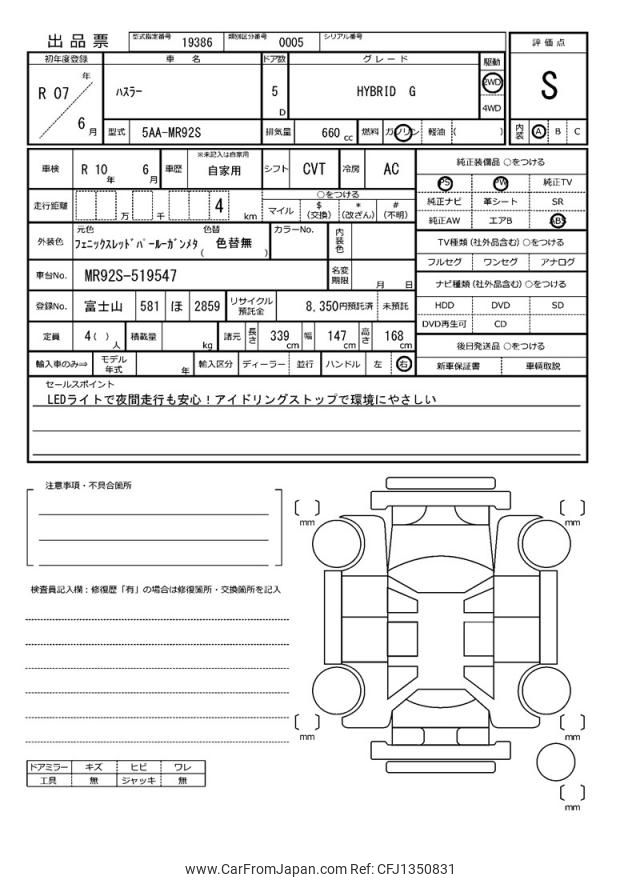 出品票 型式指定番号 19386 類別区分番号 0005 シリアル番号
評価点
S
内装 A B C
初年度登録 車名 ドア数 グレード 駆動
R 07 年 6 月 ハスラー 5 D HYBRID G 2WD 4WD
型式 5AA-MR92S 排気量 660 cc 燃料 ガソリン 軽油 ( )
車検 R 10 年 6 月 車歴 ※未記入は自家用 自家用 シフト CVT 冷房 AC
走行距離 万 千 4 km ○をつける
マイル $ (交換) * (改ざん) # (不明)
外装色 元色 色替 カラーNo. 内装色
フェニックスレッドパールーガンメタ ( 色替無 )
車台No. MR92S-519547 名変期限 月 日
登録No. 富士山 581 ほ 2859 リサイクル預託金 8,350円預託済 未預託
定員 4( ) 人 積載量 kg 諸元 長さ 339 cm 幅 147 cm 高さ 168 cm
輸入車のみ⇒ モデル年式 年 輸入区分 ディーラー 並行 ハンドル 左 右
純正装備品 ○をつける
PS PW 純正TV
純正ナビ 革シート SR
純正AW エアB ABS
TV種類 (社外品含む) ○をつける
フルセグ ワンセグ アナログ
ナビ種類 (社外品含む) ○をつける
HDD DVD SD
DVD再生可 CD
後日発送品 ○をつける
新車保証書 車輌取説
セールスポイント
LEDライトで夜間走行も安心！アイドリングストップで環境にやさしい
注意事項・不具合箇所
検査員記入欄：修復歴「有」の場合は修復箇所・交換箇所を記入
ドアミラー キズ ヒビ ワレ
工具 無 ジャッキ 無
[ ] mm
[ ] mm
[ ] mm
[ ] mm
[ ] mm
www.CarFromJapan.com Ref: CFJ1350831